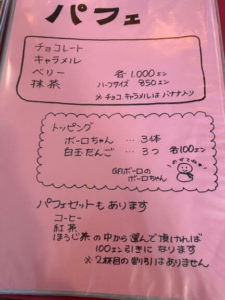 パフェ
チョコレート
キャラメル
ベリー 各1,000エン
抹茶 ハーフサイズ 850エン
※チョコ、キャラメルは バナナ入り
トッピング
ボーロちゃん … 3体
白玉だんご … 3つ 各100エン
GAボーロの
ボーロちゃん
パフェセットもあります
コーヒー
紅茶
ほうじ茶 の中から選んで頂ければ
100エン引きになります
※2杯目の割引はありません